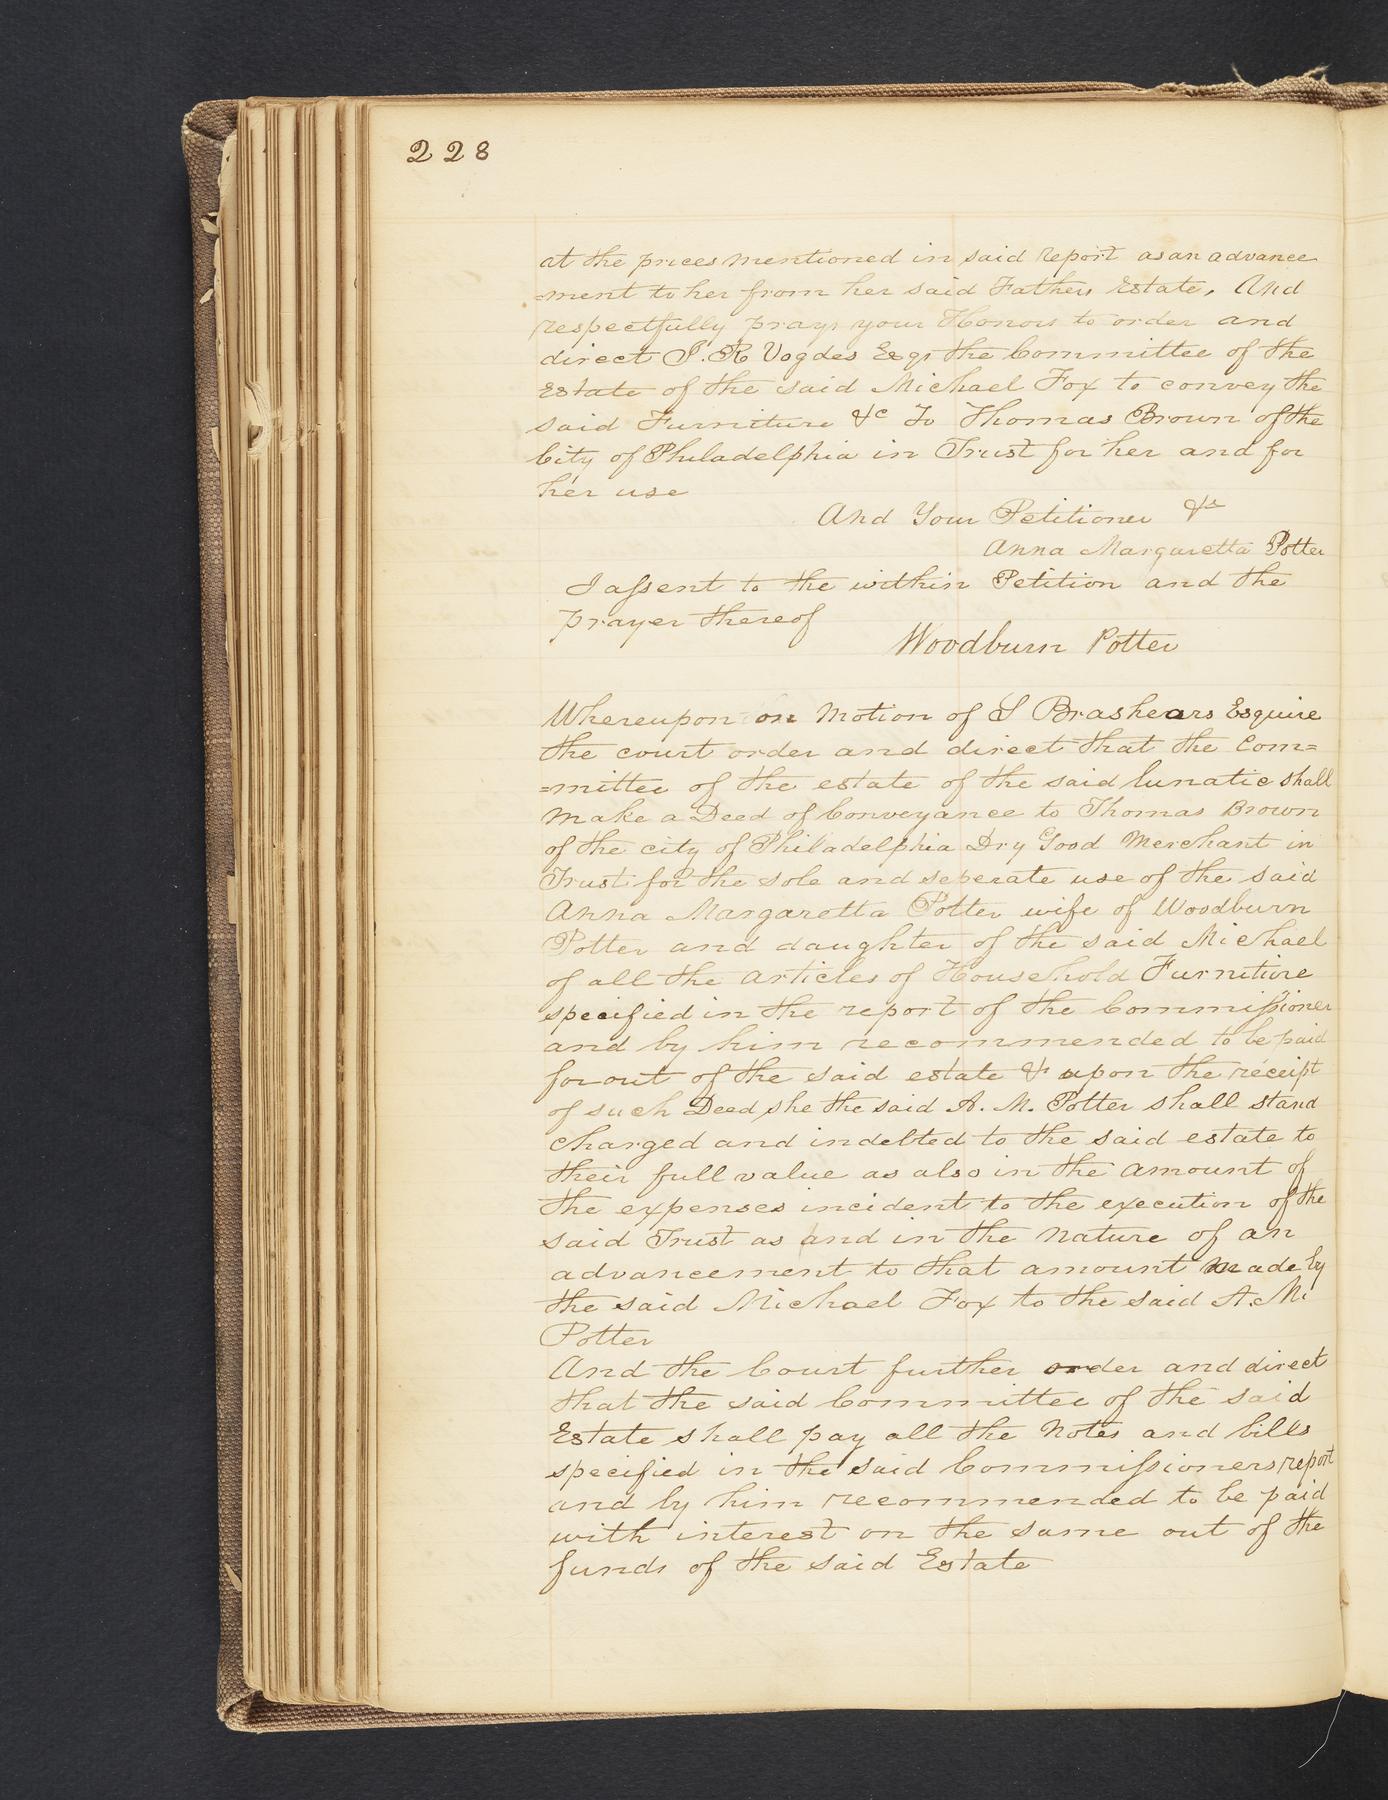 228
at the prices mentioned in said report as an advance
=ment to her from her said Fathers Estate, And
respectfully prays your Honors to order and
direct J. R Vogdes Esqr the Committee of the
Estate of the said Michael Fox to convey the
said Furniture &c To Thomas Brown of the
City of Philadelphia in Trust for her and for
her use
And Your Petitioner &c
Anna Margaretta Potter
I assent to the within Petition and the
prayer thereof
Woodburn Potter
Whereupon on Motion of S Brashears Esquire
the court order and direct that the Com=
=mittee of the estate of the said lunatic shall
make a Deed of Conveyance to Thomas Brown
of the city of Philadelphia Dry Good Merchant in
Trust for the sole and seperate use of the said
Anna Margaretta Potter wife of Woodburn
Potter and daughter of the said Michael
of all the articles of Household Furniture
specified in the report of the Commissioner
and by him recommended to be paid
for out of the said estate & upon the receipt
of such Deed she the said A. M. Potter shall stand
charged and indebted to the said estate to
their full value as also in the amount of
the expenses incident to the execution of the
said Trust as and in the nature of an
advancement to that amount made by
the said Michael Fox to the said A. M.
Potter
And the Court further order and direct
that the said Committee of the said
Estate shall pay all the Notes and bills
specified in the said Commissioners report
and by him recommended to be paid
with interest on the same out of the
funds of the said Estate